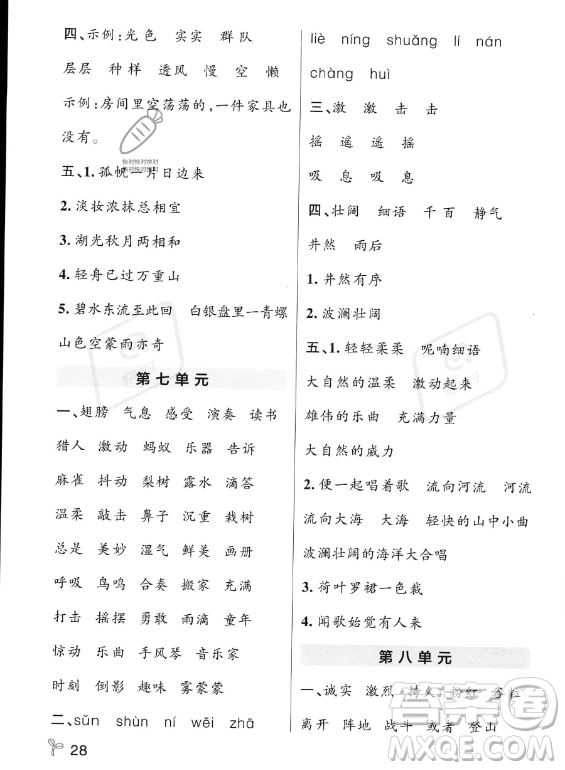 四、示例:光色 实实 群队
层层 种样 透风 慢 空 懒
示例:房间里空荡荡的,一件家具也
没有。
快对快对快对
快对快对快对
五、1. 孤帆一片日边来
2. 淡妆浓抹总相宜
3. 湖光秋月两相和
4. 轻舟已过万重山
5. 碧水东流至此回 白银盘里一青螺
山色空蒙雨亦奇
第七单元
一、翅膀 气息 感受 演奏 读书
猎人 激动 蚂蚁 乐器 告诉
麻雀 抖动 梨树 露水 滴答
温柔 敲击 鼻子 沉重 栽树
总是 美妙 湿气 鲜美 画画
呼吸 鸟鸣 合奏 搬家 充满
打击 摇摆 勇敢 雨滴 童年
惊动 小鹿 手风琴 音乐家
时刻 倒影 趣味 雾蒙蒙
二、sǔn shùn ní wěi zhā
28
liè níng shuǎng lí nán
chàng huì
三、激 激 击 击
摇 遥 遥 摇
吸 息 息 吸
四、壮阔 细语 千 百 静气
井然 雨后
1. 井然有序
2. 波澜壮阔
五、1. 轻轻柔柔 呢喃细语
大自然的温柔 激动起来
雄伟的乐曲 充满力量
大自然的威力
2. 便一起唱着歌 流向河流 河流
流向大海 大海 轻快的山中小曲
波澜壮阔的海洋大合唱
3. 荷叶罗裙一色裁
4. 闻歌始觉有人来
第八单元
一、诚实 激烈 持久 粉红 谷粒
离开 阵地 战斗 或者 登山
答案圈
MXQE.COM